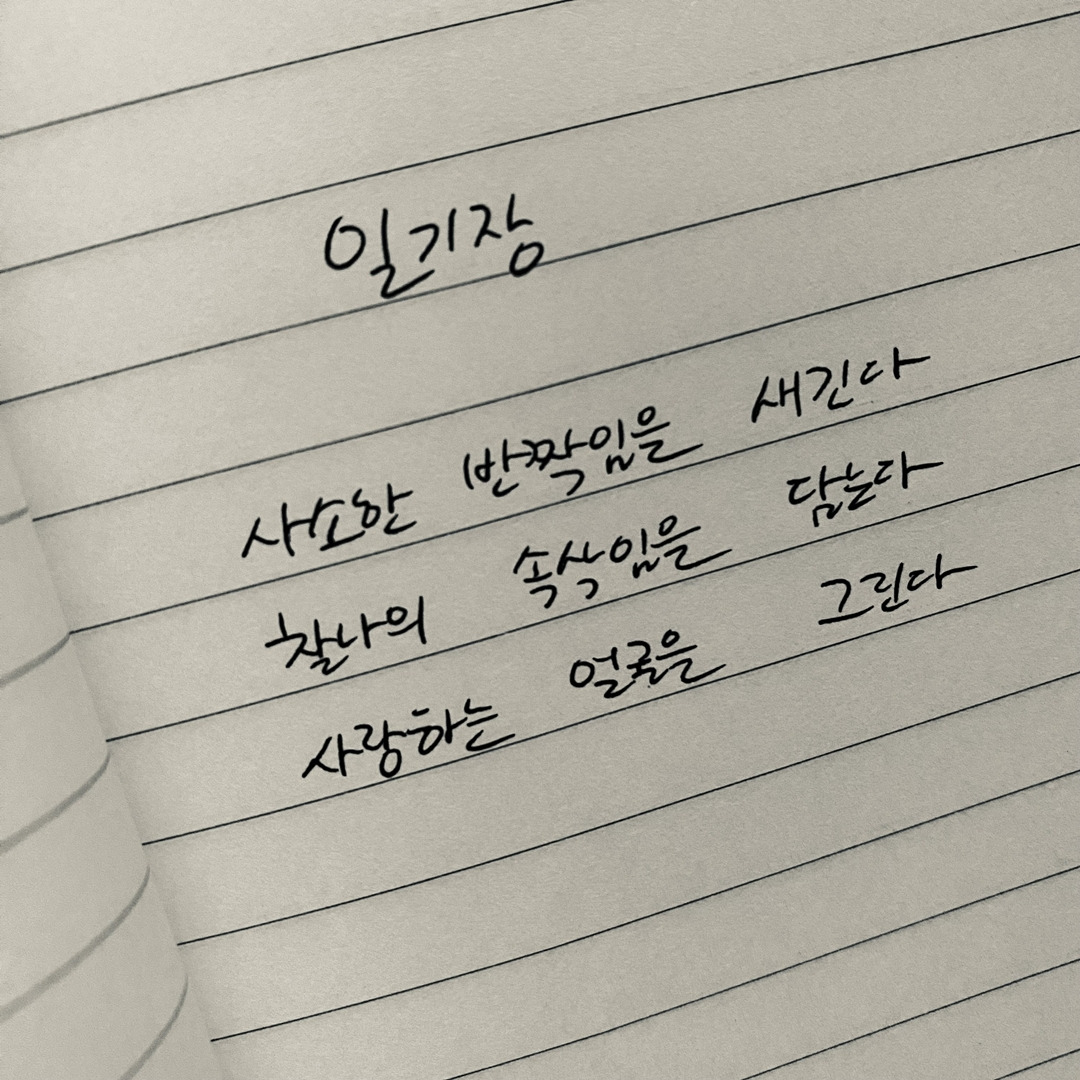 일기장
사소한 반짝임을 새긴다
찰나의 속삭임을 담는다
사랑하는 얼굴을 그린다